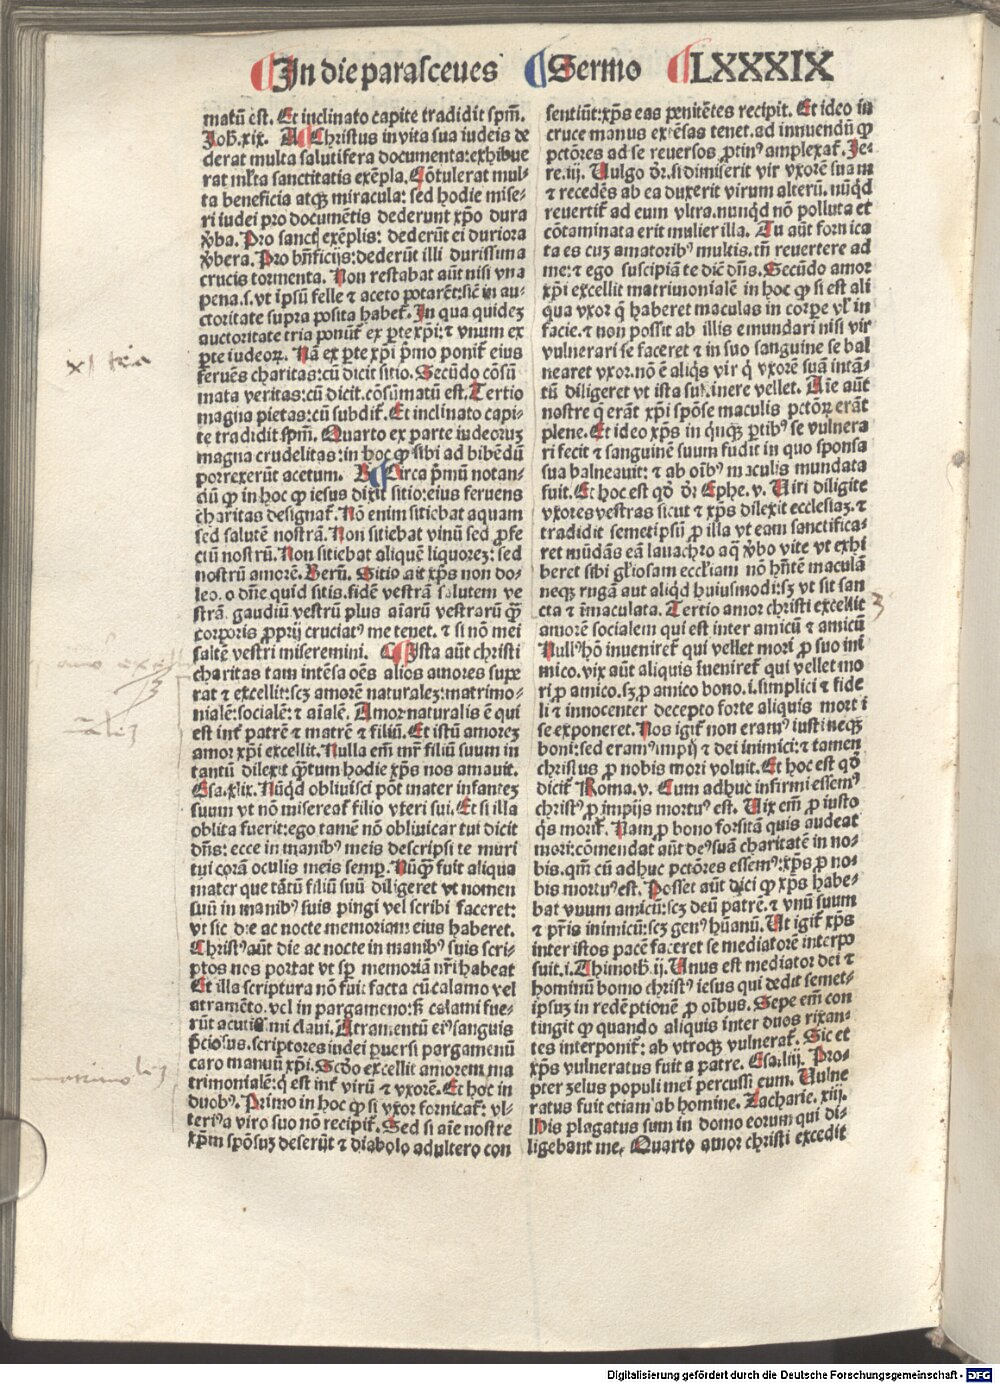 In die parasceues Sermo LXXXIX
matū est. Et inclinato capite tradidit spm̄.
Joh̄. xix. A Christus in vita sua iudeis de
derat multa salutifera documenta: exhibue
rat ml̄ta sanctitatis exēpla. Cōtulerat mul-
ta beneficia atqꝫ miracula: sed hodie mise-
ri iudei pro documētis dederunt xp̄o dura
v̄ba. Pro sancti exēplis: dederūt ei duriora
v̄bera. Pro bn̄ficijs: dederūt illi durissima
crucis tormenta. Non restabat aūt nisi vna
pena. s. vt ipsū felle ⁊ aceto potarēt: sic̄ in au-
ctoritate supra posita habet᷑. In qua quideꝫ
auctoritate tria ponūt᷑ ex ꝑte xp̄i: ⁊ vnum ex
ꝑte iudeoꝝ. Nā ex ꝑte xp̄i p̄mo ponit᷑ eius
feruēs charitas: cū dicit sitio. Secūdo cōsū
mata veritas: cū dicit. cōsūmatū est. Tertio
magna pietas: cū subdit᷑. Et inclinato capi-
te tradidit spm̄. Quarto ex parte iudeoruꝫ
magna crudelitas: in hoc ꝙ sibi ad bibēdū
porrexerūt acetum. B Circa p̄mū notan-
dū ꝙ in hoc ꝙ iesus dixit sitio: eius feruens
charitas designat᷑. Nō enim sitiebat aquam
sed salutē nostrā. Non sitiebat vinū sed ꝓfe
ctū nostrū. Non sitiebat aliquē liquoreꝫ: sed
nostrū amorē. Berñ. Sitio ait xp̄s non do-
leo. o dn̄e quid sitis. fidē vestrā salutem ve
strā. gaudiū vestrū plus aīarū vestrarū ꝙ̄
corporis ꝓprij cruciatꝰ me tenet. ⁊ si nō mei
saltē vestri miseremini. C Ista aūt christi
charitas tam intēsa oēs alios amores supe
rat ⁊ excellit: scꝫ amorē naturaleꝫ: matrimo-
nialē: socialē: ⁊ aīalē. Amor naturalis ē qui
est int᷑ patrē ⁊ matrē ⁊ filiū. Et istū amoreꝫ
amor xp̄i excellit. Nulla em̄ mr̄ filiū suum in
tantū dilexit q̄ꝫtum hodie xp̄s nos amauit.
Esa. xlix. Nūqd obliuisci pōt mater infanteꝫ
suum vt nō misereat᷑ filio vteri sui. Et si illa
oblita fuerit: ego tamē nō obliuicar tui dicit
dn̄s: ecce in manibꝰ meis descripsi te muri
tui corā oculis meis semꝑ. Nūqꝫ fuit aliqua
mater que tātū filiū suū diligeret vt nomen
suū in manibꝰ suis pingi vel scribi faceret:
vt sic die ac nocte memoriam eius haberet.
Christꝰ aūt die ac nocte in manibꝰ suis scri-
ptos nos portat vt sꝑ memoriā nr̄i habeat
Et illa scriptura nō fuit facta cū calamo vel
atramēto. vel in pargameno: s̄ꝫ calami fue-
rūt acutissimi claui. Atramentū eiꝰ sanguis
p̄ciosus. scriptores iudei ꝑuersi pargamenū
caro manuū xp̄i. Scd̄o excellit amorem ma
trimonialē: q̄ est int᷑ virū ⁊ vxorē. Et hoc in
duobꝰ. Primo in hoc ꝙ si vxor fornicat᷑: vl-
teriꝰ a viro suo nō recipit᷑. Sed si aīe nostre
xp̄m spōsuꝫ deserūt ⁊ diabolo adultero con
sentiūt: xp̄s eas penitētes recipit. Et ideo in
cruce manus extēsas tenet. ad innuendū ꝙ
pctōres ad se reuersos ꝓtinꝰ amplexat᷑. Je-
re. iij. Vulgo dr̄. si dimiserit vir vxorē suam
⁊ recedēs ab ea duxerit virum alterū. nūqd
reuertit᷑ ad eum vltra. nunqd nō polluta et
cōtaminata erit mulier illa. Tu aūt fornica
ta es cuꝫ amatoribꝰ multis. tn̄ reuertere ad
me: ⁊ ego suscipiā te dic̄ dn̄s. Secūdo amor
xp̄i excellit matrimonialē in hoc ꝙ si est ali
qua vxor q̄ haberet maculas in corpe vl̄ in
facie. ⁊ non possit ab illis emundari nisi vir
vulnerari se faceret ⁊ in suo sanguine se bal
nearet vxor. nō ē aliqs vir q̇ vxorē suā intā-
tū diligeret vt ista sustinere vellet. Aīe aūt
nostre q̄ erāt xp̄i spōse maculis pctōꝝ erāt
plene. Et ideo xp̄s in qꝫinqꝫ ꝑtibꝰ se vulnera
ri fecit ⁊ sanguinē suum fudit in quo sponsa
sua balneauit: ⁊ ab oībꝰ maculis mundata
fuit. Et hoc est qd̄ dr̄ Ephe. v. Viri diligite
vxores vestras sicut ⁊ xp̄s dilexit ecclesiaꝫ. ⁊
tradidit semetipsū ꝓ illa vt eam sanctifica-
ret mūdās eā lauachro aq̄ v̄bo vite vt exhi
beret sibi gl̄iosam eccl̄iam nō hn̄tē maculā
neqꝫ rugā aut aliqd huiusmodi: sꝫ vt sit san
cta ⁊ īmaculata. Tertio amor christi excellit
amorē socialem qui est inter amicū ⁊ amicū
Nullꝰ hō inueniret᷑ qui vellet mori ꝓ suo ini
mico. vix aūt aliquis īueniret᷑ qui vellet mo
ri ꝓ amico. sꝫ ꝓ amico bono. i. simplici ⁊ fide
li ⁊ innocenter decepto forte aliquis mort i
se exponeret. Nos igit᷑ non eramꝰ iusti neqꝫ
boni: sed eramꝰ impij ⁊ dei inimici: ⁊ tamen
christus ꝓ nobis mori voluit. Et hoc est qd̄
dicit᷑ Roma. v. Cum adhuc infirmi essemꝰ
christꝰ ꝓ impijs mortuꝰ est. Vix em̄ ꝓ iusto
qs morit᷑. Nam ꝓ bono forsitā quis audeat
mori: cōmendat aūt deꝰ suā charitatē in no-
bis. qm̄ cū adhuc pctōres essemꝰ: xp̄s ꝓ no-
bis mortuꝰ est. Posset aūt dici ꝙ xp̄s habe-
bat vnum amicū: scꝫ deū patrē. ⁊ vnū suum
⁊ pr̄is inimicū: scꝫ genꝰ hūanū. Ut igit᷑ xp̄s
inter istos pacē faceret se mediatorē interpo
suit. i. Thimoth. ij. Unus est mediator dei ⁊
hominū homo christꝰ iesus qui dedit semet-
ipsuꝫ in redēptionē ꝓ oībus. Sepe em̄ con
tingit ꝙ quando aliquis inter duos rixan-
tes interponit᷑: ab vtroqꝫ vulnerat᷑. Sic et
xp̄s vulneratus fuit a patre. Esa. liij. Pro-
pter zelus populi mei percussi eum. Vulne
ratus fuit etiam ab homine. Zacharie. xiij.
His plagatus sum in domo eorum qui di-
ligebant me. Quarto amor christi excedit
Digitalisierung gefördert durch die Deutsche Forschungsgemeinschaft - DFG